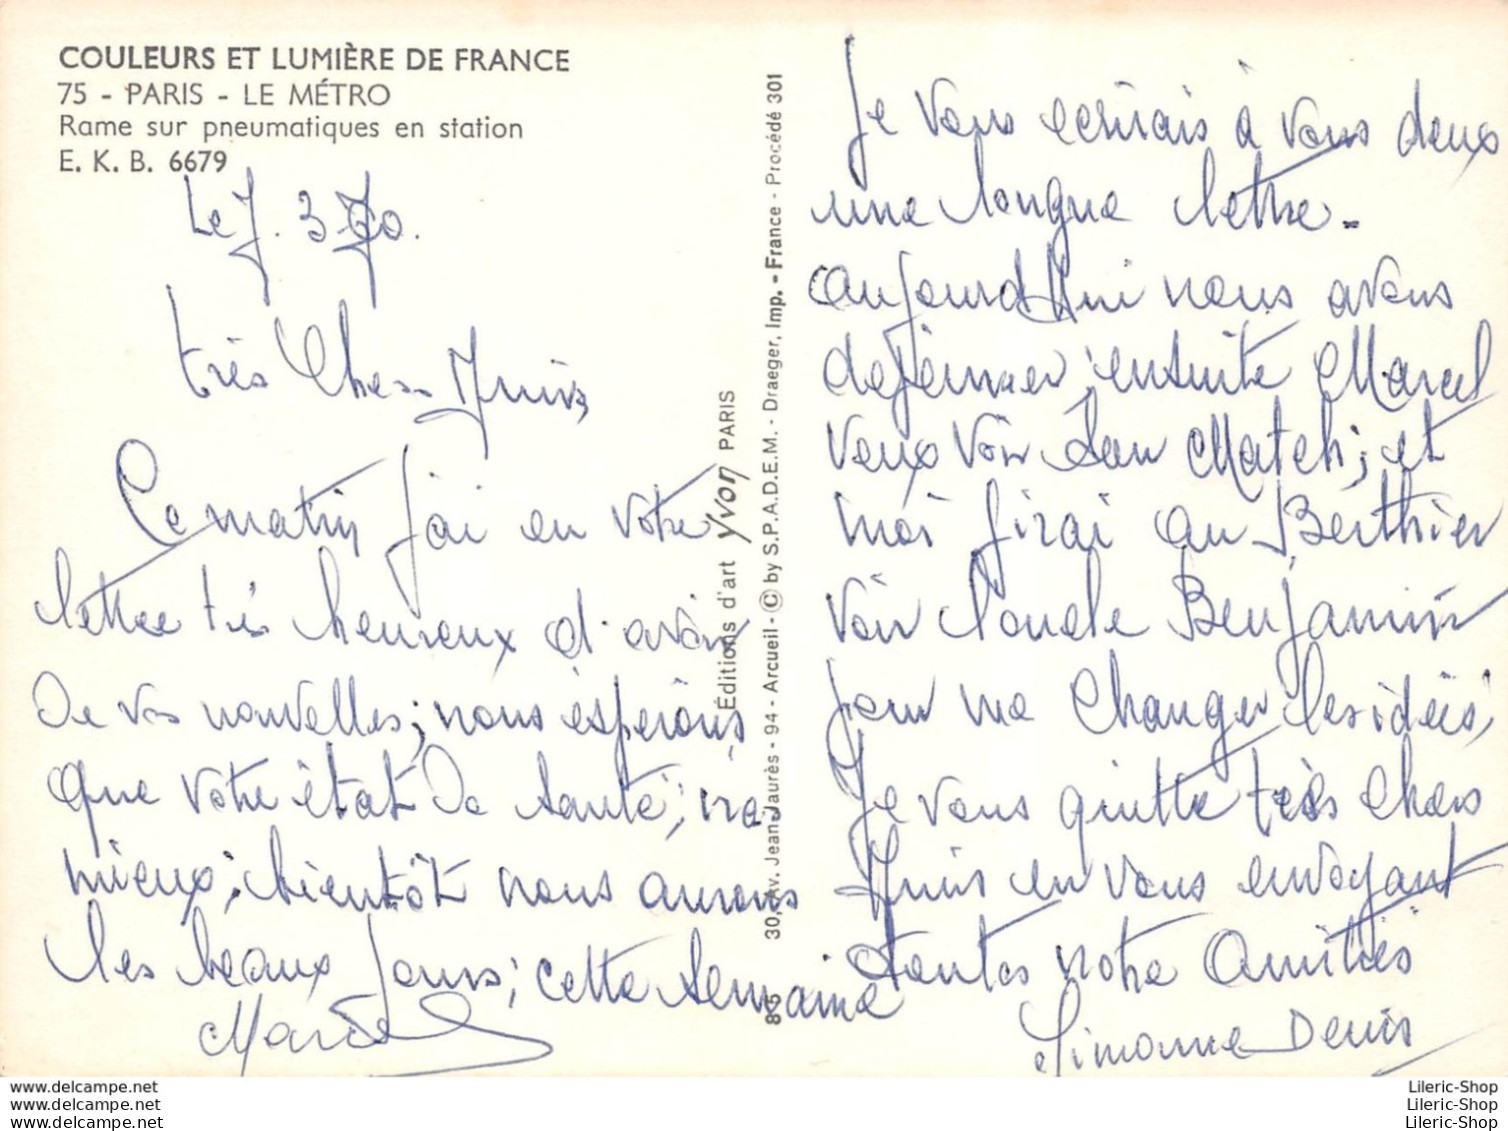 COULEURS ET LUMIÈRE DE FRANCE
75 - PARIS - LE MÉTRO
Rame sur pneumatiques en station
E. K. B. 6679
Le 7. 3-70.
très Chers Amis
Ce matin j'ai eu votre
lettre très heureux d'avoir
de vos nouvelles; nous espérons
que votre état de santé, va
mieux; bientôt nous aurons
les beaux jours; cette semaine
Marcel
Je vous ecrirais à vous deux
une longue lettre -
aujourd'hui nous avons
dejeuner, ensuite Marcel
veux voir son Match; et
moi j'irai au Berthier
voir l'oncle Benjamin
pour me changer les idées,
Je vous quitte très chers
Amis en vous envoyant
toutes notre Amitiés
Simonne Denis
Éditions d'art Yvon PARIS
30, Av. Jean-Jaurès - 94 - Arcueil - © by S.P.A.D.E.M. - Draeger, Imp. - France - Procédé 301
www.delcampe.net
www.delcampe.net
www.delcampe.net
Lileric-Shop
Lileric-Shop
Lileric-Shop